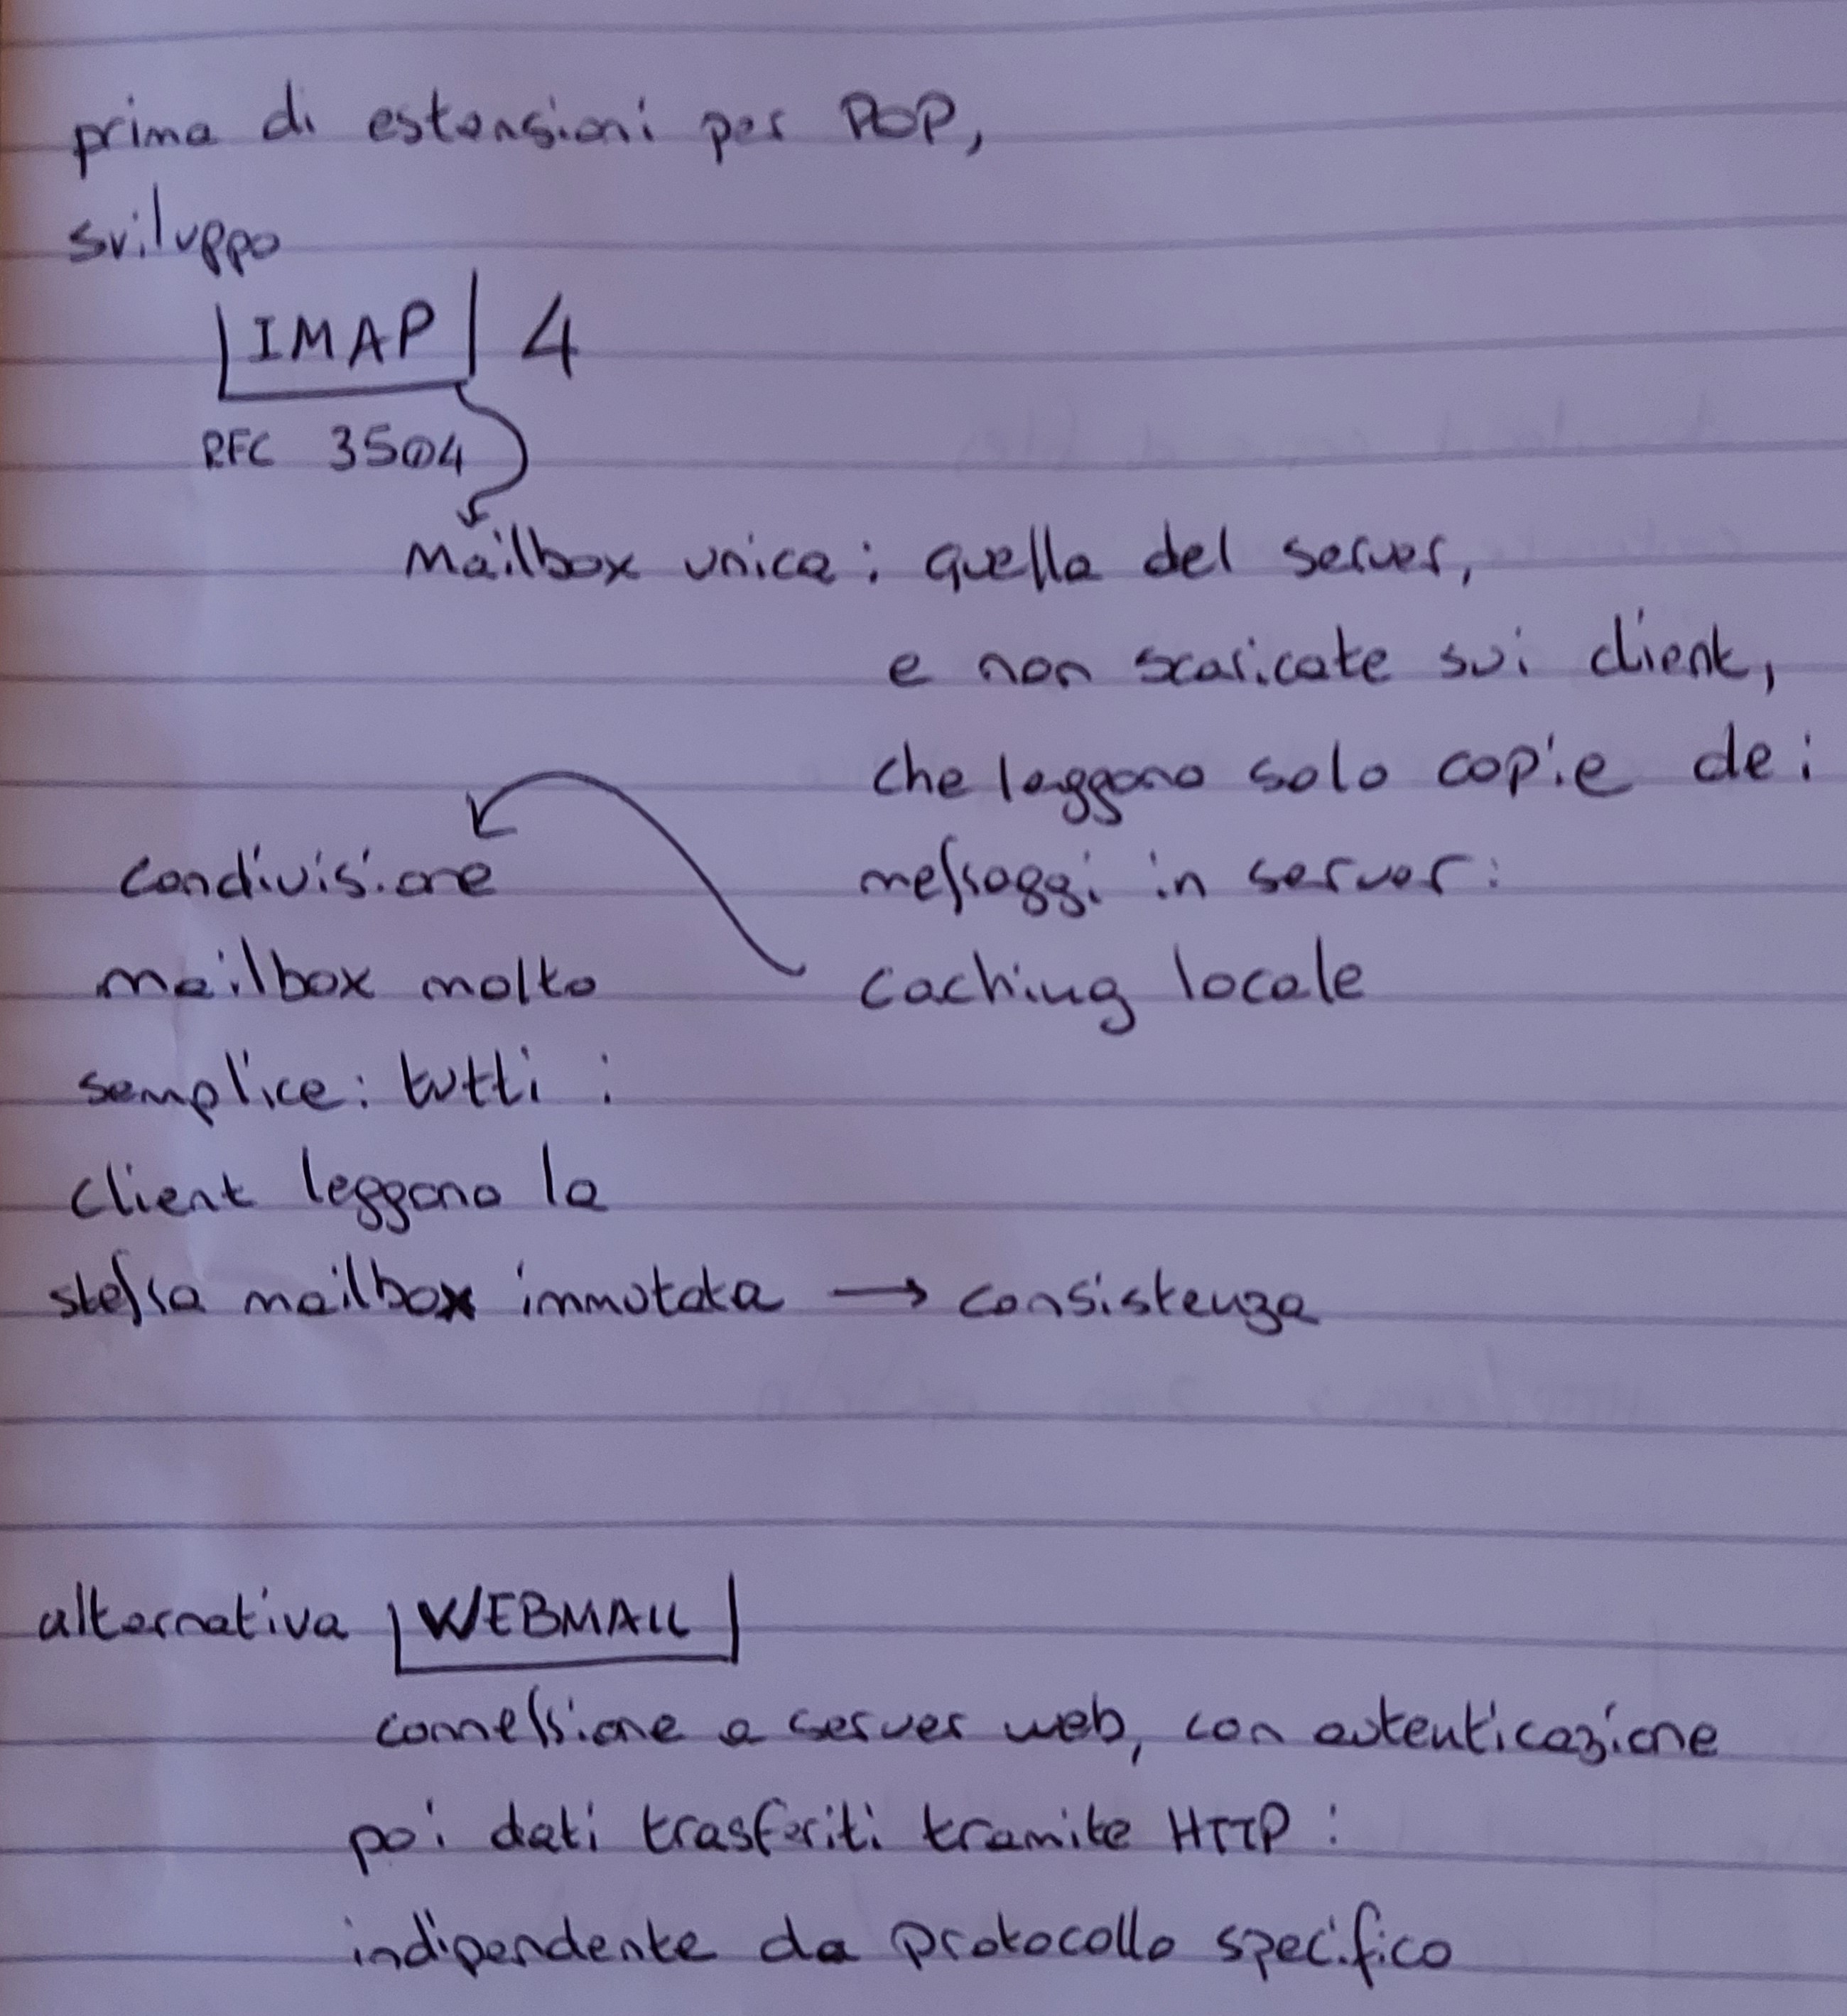 prima di estensioni per POP,
sviluppo
IMAP 4
RFC 3501
Mailbox unica: quella del server,
e non scaricate sui client,
che leggono solo copie dei
messaggi in server:
caching locale
condivisione
mailbox molto
semplice: tutti i
client leggono la
stessa mailbox immutata → consistenza
alternativa WEBMAIL
connessione a server web, con autenticazione
poi dati trasferiti tramite HTTP:
indipendente da protocollo specifico